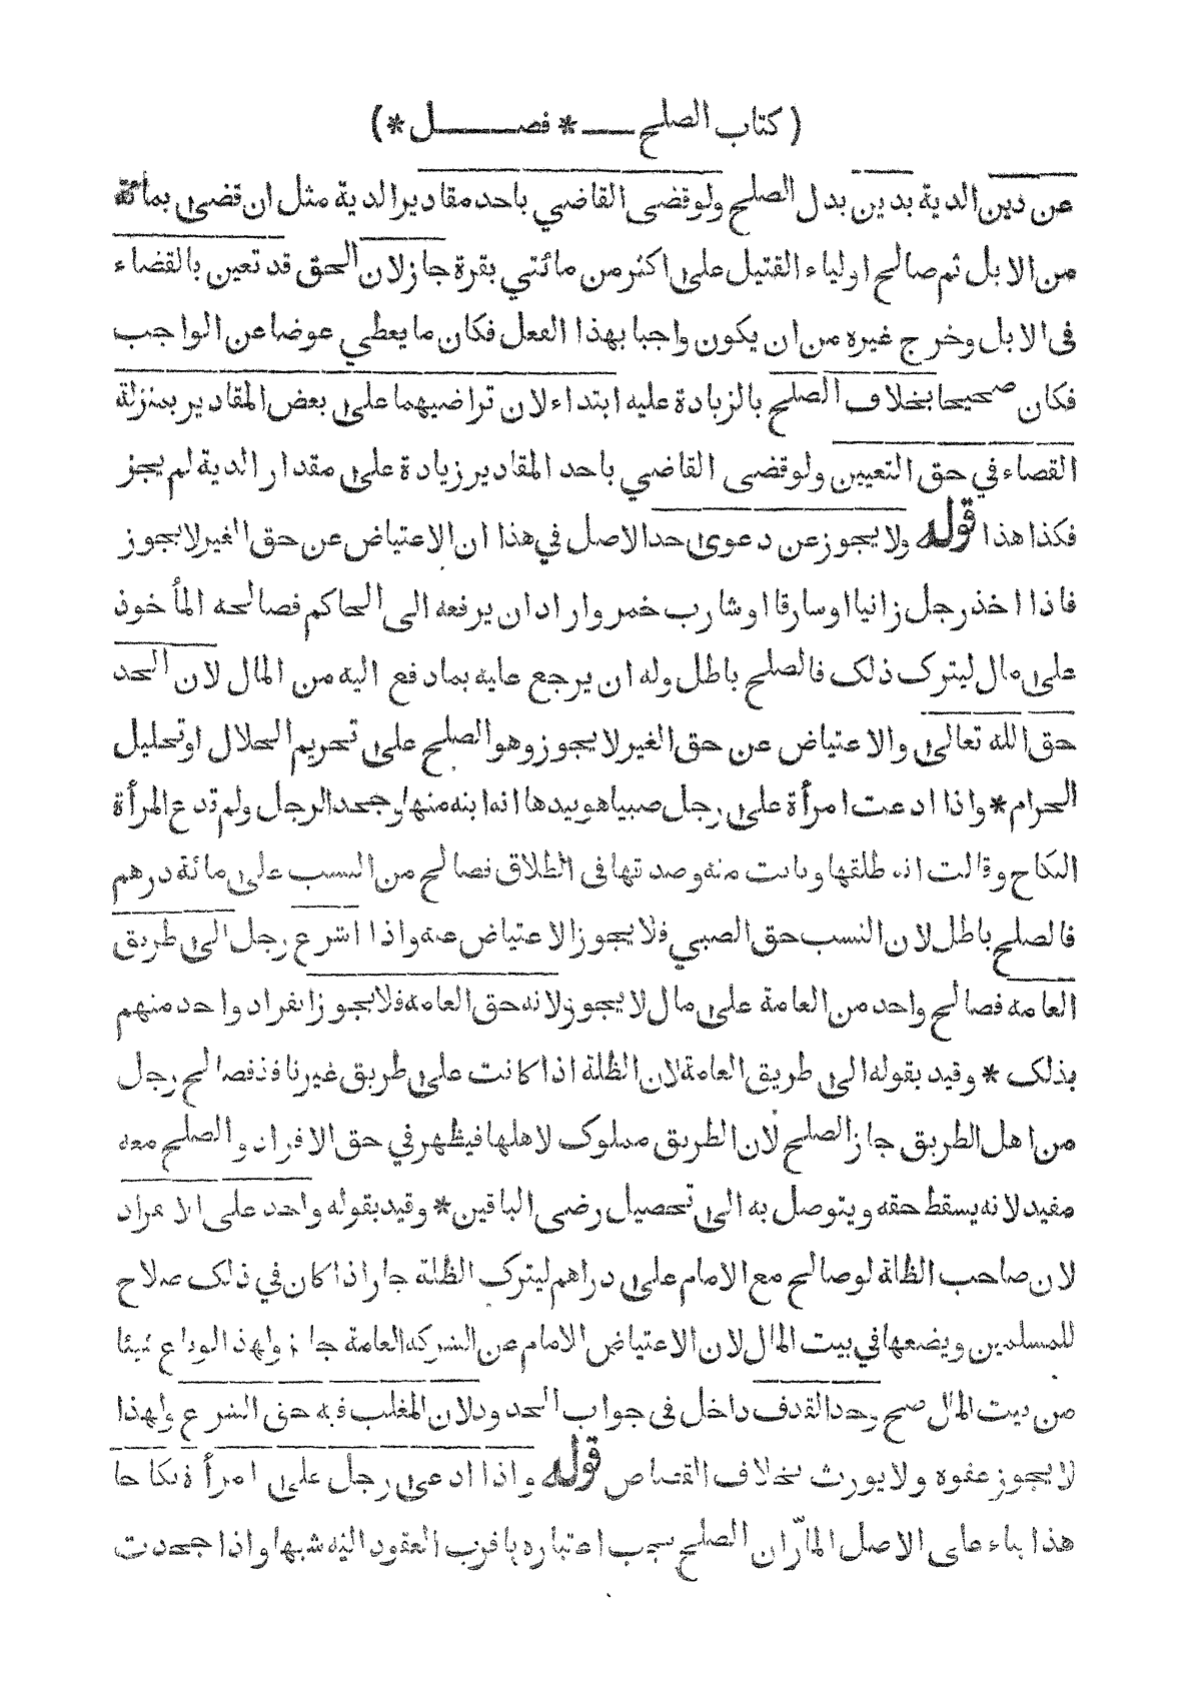 ( كتاب الصلح — * فصل * )
عن دين الدية بدين بدل الصلح ولو قضى القاضي باحد مقادير الدية مثل ان قضى بمائة
من الابل ثم صالح اولياء القتيل على اكثر من مائتي بقرة جاز لان الحق قد تعين بالقضاء
فى الابل وخرج غيره من ان يكون واجبا بهذا الفعل فكان ما يعطي عوضا عن الواجب
فكان صحيحا بخلاف الصلح بالزيادة عليه ابتداء لان تراضيهما على بعض المقادير بمنزلة
القصاء في حق التعيين ولو قضى القاضي باحد المقادير زيادة على مقدار الدية لم يجز
فكذا هذا قوله ولا يجوز عن دعوى حد الاصل في هذا ان الاعتياض عن حق الغير لا يجوز
فاذا اخذ رجل زانيا او سارقا او شارب خمر واراد ان يرفعه الى الحاكم فصالحه المأخوذ
على مال ليترك ذلك فالصلح باطل وله ان يرجع عليه بما دفع اليه من المال لان الحد
حق الله تعالى والاعتياض عن حق الغير لا يجوز وهو الصلح على تحريم الحلال او تحليل
الحرام * واذا ادعت امرأة على رجل صبيا هو بيدها انه ابنه منها وجحد الرجل ولم تدع المرأة
النكاح وقالت انه طلقها وبانت منه وصدقها فى الطلاق فصالح من النسب على مائة درهم
فالصلح باطل لان النسب حق الصبي فلا يجوز الاعتياض عنه واذا اشرع رجل الى طريق
العامة فصالح واحد من العامة على مال لا يجوز لانه حق العامة فلا يجوز انفراد واحد منهم
بذلك * وقيد بقوله الى طريق العامة لان الظلة اذا كانت على طريق غير نافذ فصالح رجل
من اهل الطريق جاز الصلح لان الطريق مملوك لاهلها فيظهر في حق الافراد والصلح معه
مفيد لانه يسقط حقه ويتوصل به الى تحصيل رضى الباقين * وقيد بقوله واحد على الانفراد
لان صاحب الظلة لو صالح مع الامام على دراهم ليترك الظلة جاز اذا كان في ذلك صلاح
للمسلمين ويضعها في بيت المال لان الاعتياض الامام عن الشركة العامة جائز ولهذا لو باع شيئا
من بيت المال صح وحد القذف داخل فى جواب الحدود لان المغلب فيه حق الشرع ولهذا
لا يجوز عفوه ولا يورث بخلاف القصاص قوله واذا ادعى رجل على امرأة نكاحا
هذا بناء على الاصل المارّ ان الصلح يجب اعتباره باقرب العقود اليه شبها واذا جحدت